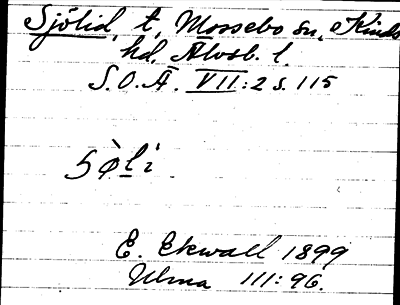 Sjölid, t, Mossebo sn, Kinds
hd, Älvsb. l.
S.O.Ä. VII:2 s. 115
sø̀li.
E. Ekwall 1899
Ulma III: 96.